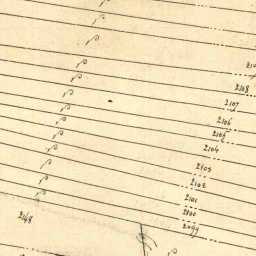 2108
2107
2106
2105
2104
2103
2102
2101
2100
2099
2148